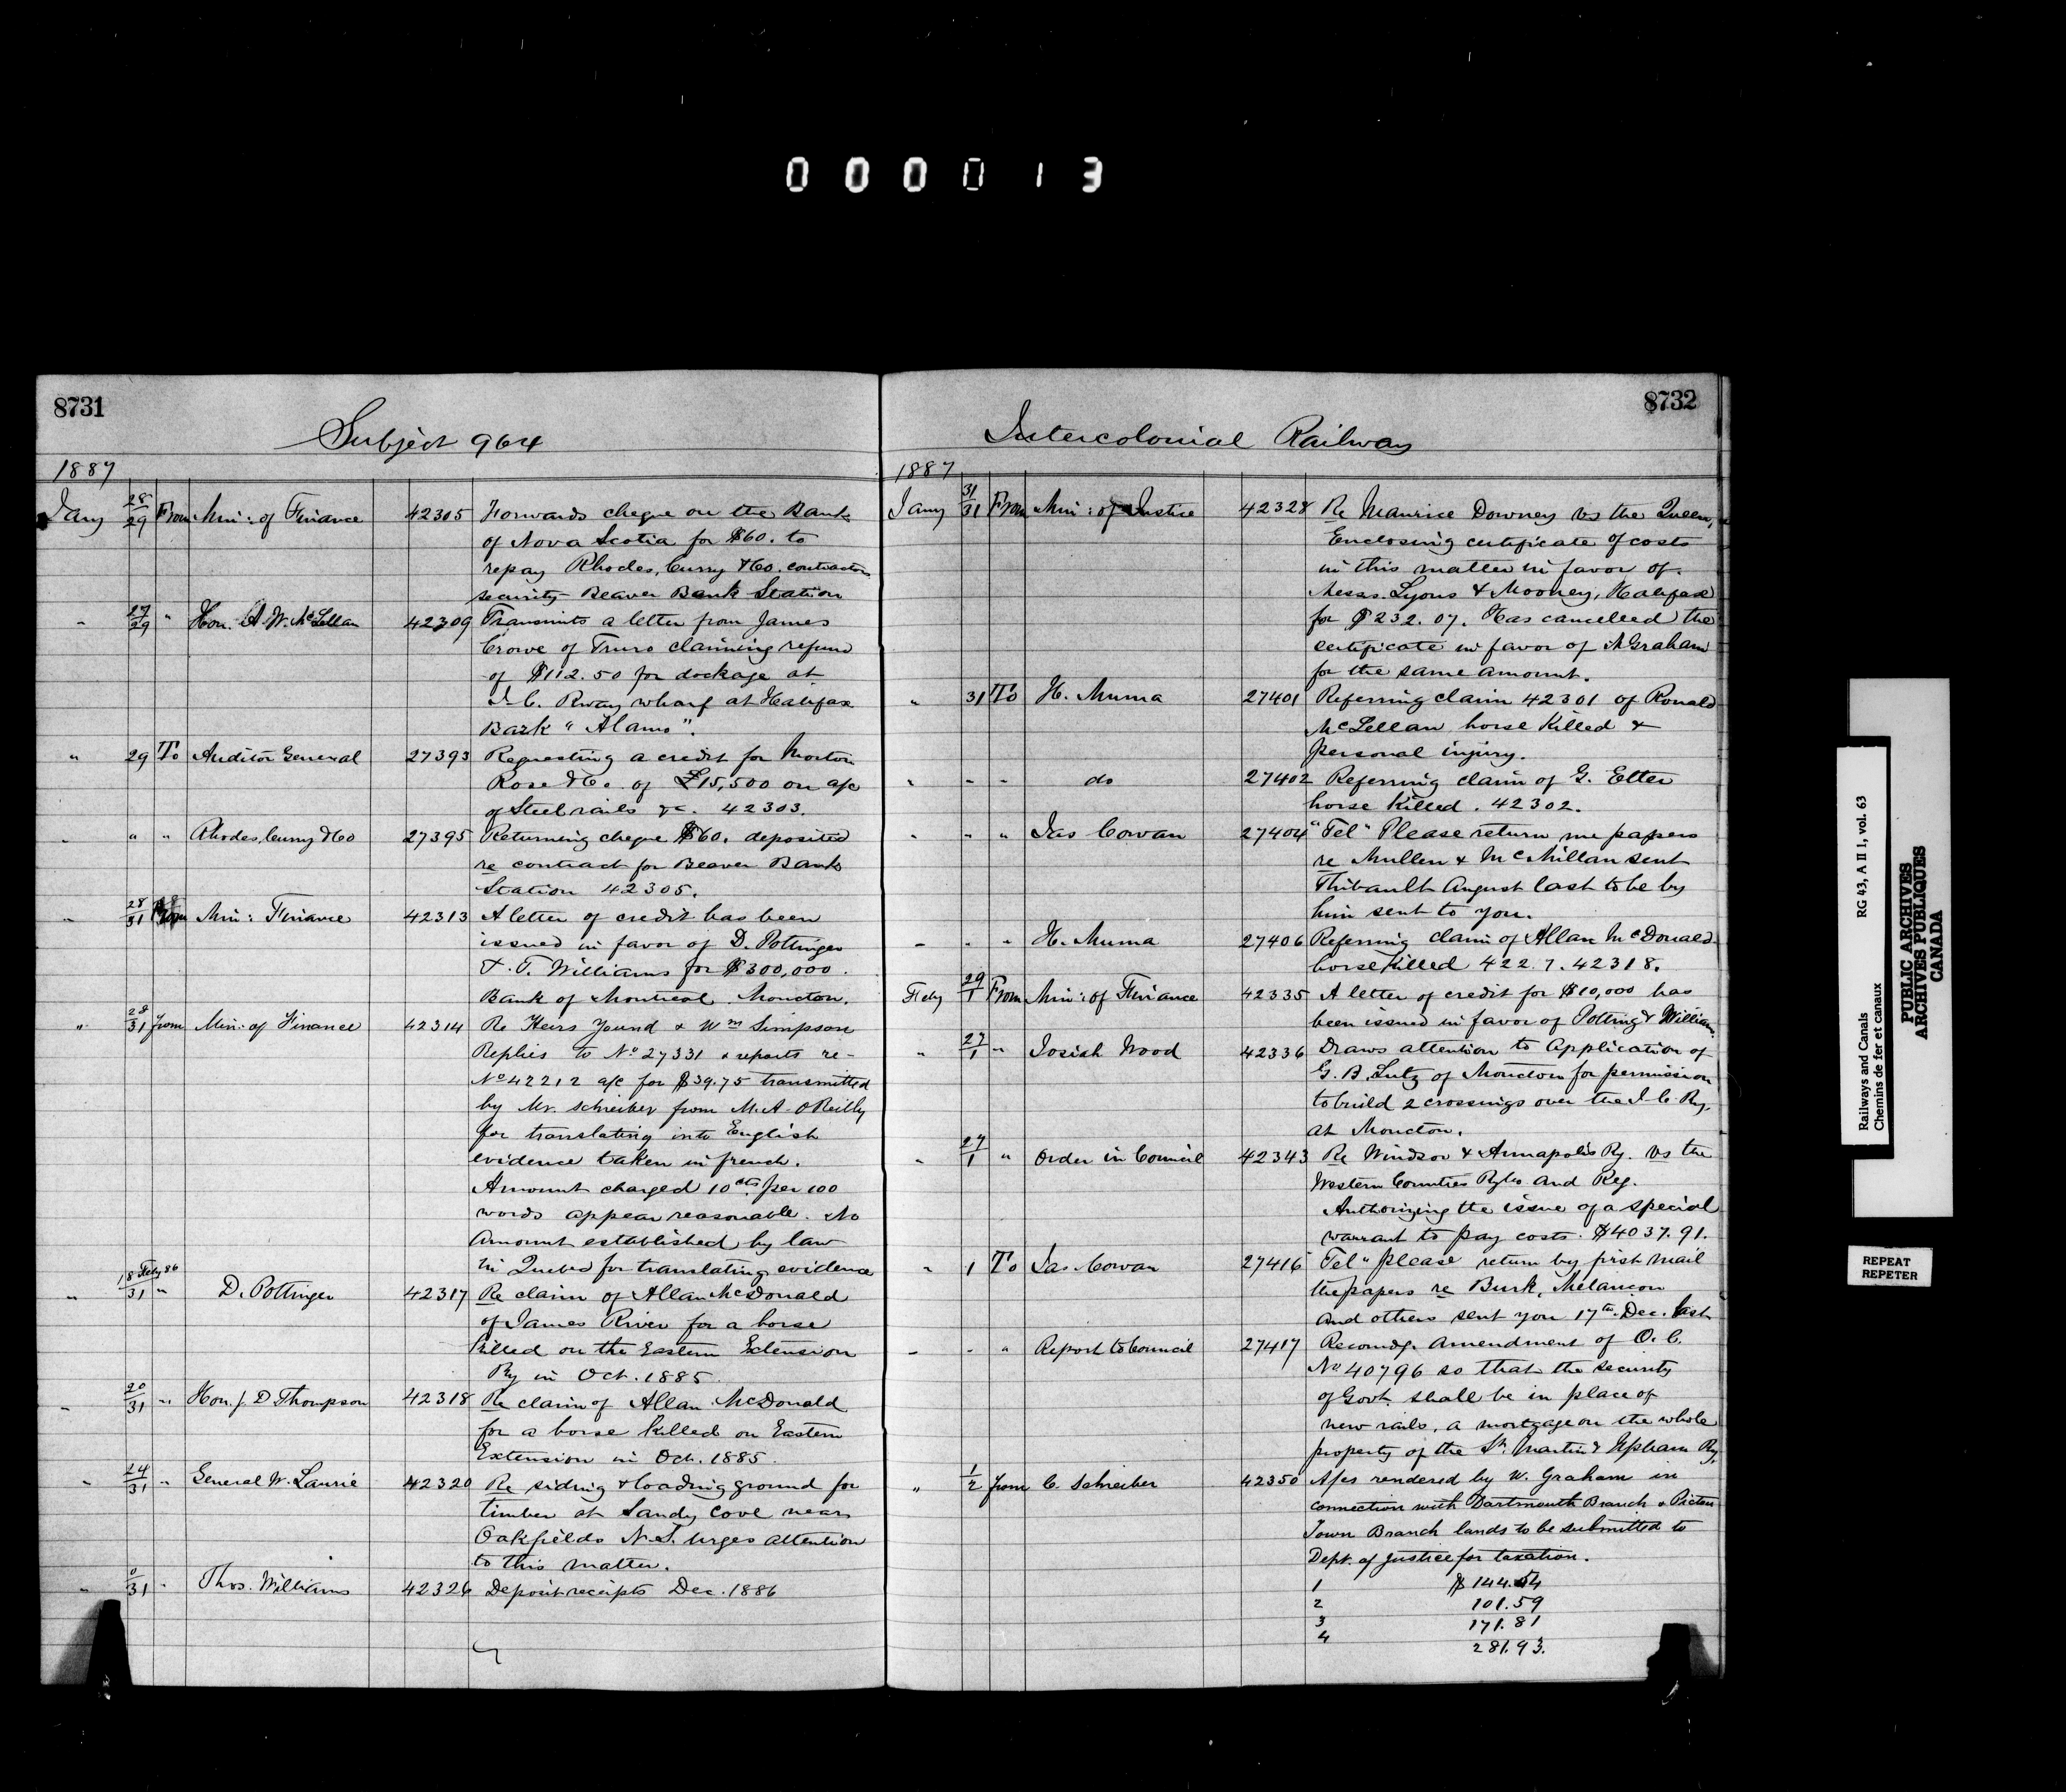 000013
8731
Subject 964
1887
Jany 28/29 From Min: of Finance 42305 Forwards cheque on the Bank
of Nova Scotia for $60. to
repay Rhodes, Curry & Co. contractors
security Beaver Bank Station
" 27/29 " Hon. A. W. McLellan 42309 Transmits a letter from James
Crowe of Truro claiming refund
of $112.50 for dockage at
I. C. Rway wharf at Halifax
Bark "Alamo".
" 29 To Auditor General 27393 Requesting a credit for Morton
Rose & Co. of £15,500 on a/c
of Steel rails &c. 42303.
" " " Rhodes, Curry & Co 27395 Returning cheque $60. deposited
re contract for Beaver Bank
Station 42305.
" 28/31 From Min: Finance 42313 A letter of credit has been
issued in favor of D. Pottinger
& T. Williams for $300,000.
Bank of Montreal Moncton.
" 28/31 from Min: of Finance 42314 Re Heirs Yound & Wm Simpson
Replies to No 27331 & reports re-
No 42212 a/c for $39.75 transmitted
by Mr. Schreiber from M. A. O'Reilly
for translating into English
evidence taken in french.
Amount charged 10cts per 100
words appear reasonable. No
Amount established by law
in Quebec for translating evidence
" 18 Feby 86/31 " D. Pottinger 42317 Re claim of Allan McDonald
of James River for a horse
killed on the Eastern Extension
Ry in Oct. 1885.
" 20/31 " Hon. J. D Thompson 42318 Re claim of Allan McDonald
for a horse killed on Eastern
Extension in Oct. 1885.
" 24/31 " General W. Laurie 42320 Re siding & loading ground for
timber at Sandy Cove near
Oakfields N.S. urges attention
to this matter.
" 0/31 " Thos. Williams 42326 Deposit receipts Dec. 1886
8732
Intercolonial Railway
1887
Jany 31/31 From Min: of Justice 42328 Re Maurice Downey vs the Queen,
Enclosing certificate of costs
in this matter in favor of.
Messrs. Lyons & Mooney, Halifax
for $232.07. Has cancelled the
certificate in favor of A Graham
for the same amount.
" 31 To H. Muma 27401 Referring claim 42301 of Ronald
McLellan horse killed &
personal injury.
" " " do 27402 Referring claim of G. Etter
horse killed. 42302.
" " " Jas Cowan 27404 "Tel" Please return me papers
re Mullen & McMillan sent
Thibault August last to be by
him sent to you.
" " " H. Muma 27406 Referring claim of Allan McDonald
horse killed 422.7. 42318.
Feby 29/1 From Min: of Finance 42335 A letter of credit for $10,000 has
been issued in favor of Potting & William.
" 27/1 " Josiah Wood 42336 Draws attention to Application of
G. B. Lutz of Moncton for permission
to build 2 crossings over the I. C. Ry.
at Moncton.
" 27/1 " Order in Council 42343 Re Windsor & Annapolis Ry. vs the
Western Counties Ry Co and Reg.
Authorizing the issue of a special
warrant to pay costs. $4037.91.
" 1 To Jas. Cowan 27416 Tel" please return by first mail
the papers re Burk, Melancon
and others sent you 17th Dec. last
" " " Report to Council 27417 Recomdg. amendment of O. C.
No 40796 so that the security
of Govt. shall be in place of
new rails, a mortgage on the whole
property of the St. Martin & Upham Ry.
" 1/2 from C. Schreiber 42350 A/cs rendered by W. Graham in
connection with Dartmouth Branch & Pictou
Town Branch lands to be submitted to
Dept. of Justice for taxation.
1 $144.54
2 101.59
3 171.81
4 281.93.
Railways and Canals RG 43, A II 1, vol. 63
Chemins de fer et canaux
PUBLIC ARCHIVES
ARCHIVES PUBLIQUES
CANADA
REPEAT
REPETER